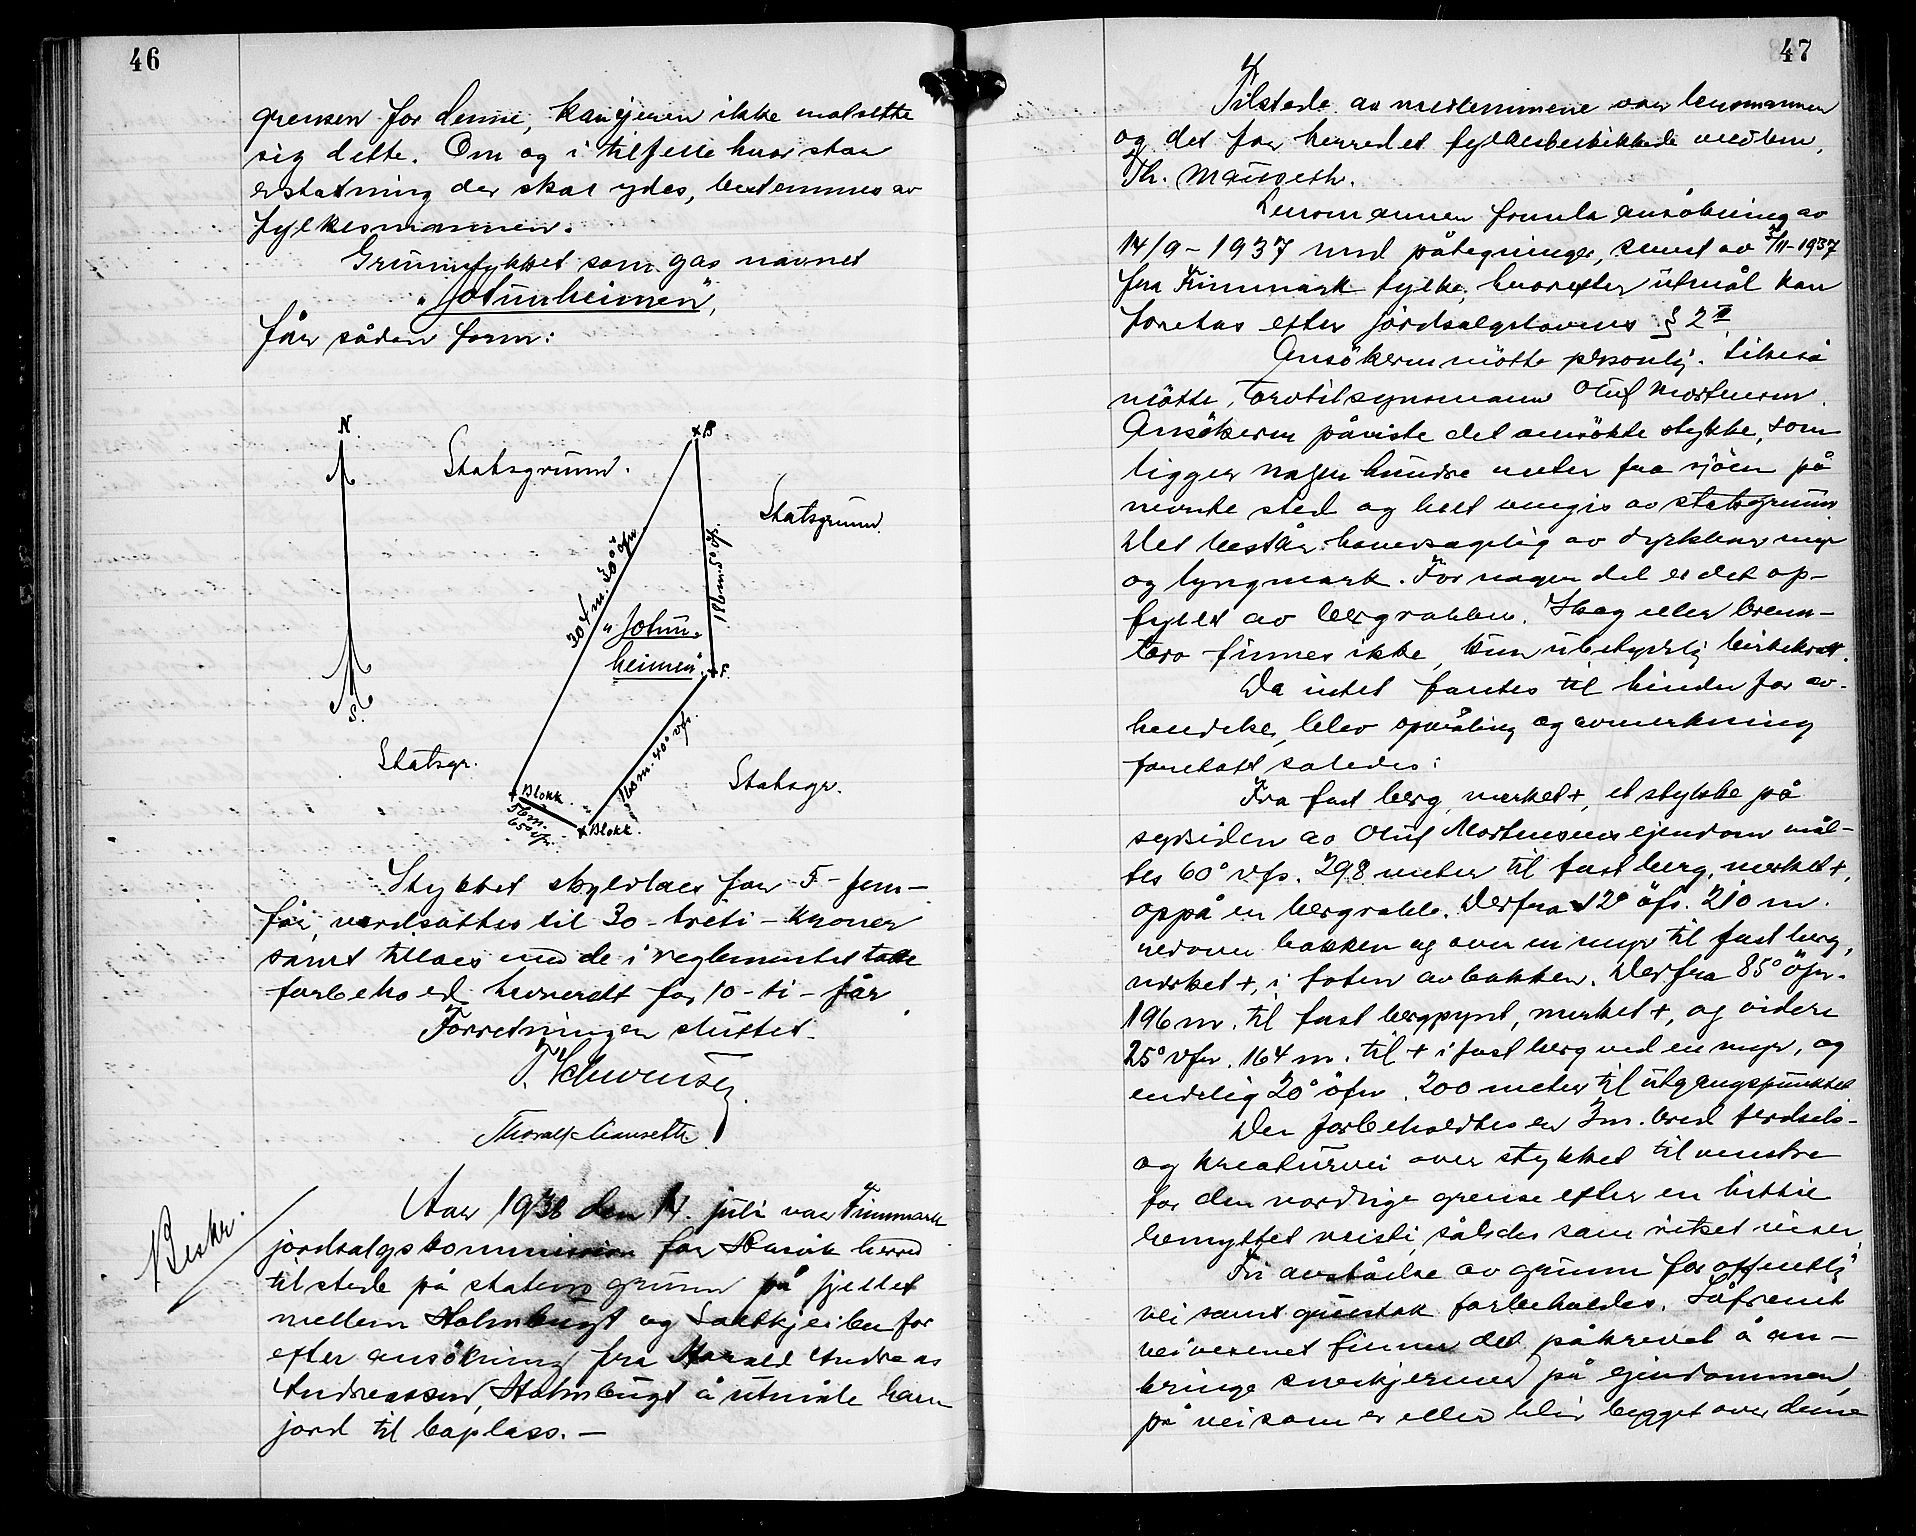 46
grensen for denne, kan eieren ikke motsette
sig dette. Om og i tilfelle hvor stor
erstatning der skal ydes, bestemmes av
fylkesmannen.
Grunnstykket som gas navnet
"Jotunheimen",
får sådan form:
N.
S.
Statsgrunn.
Statsgrunn.
B
304 m. 30° öfn.
186 m 5° öfs.
"Jotun-
heimen".
F.
160 m. 40° vfs.
Statsgr.
Statsgr.
Blokk.
56 m.
65° vfn.
Blokk.
Stykket skyldlaes for 5 - fem -
før, verdsattes til 30 - treti - kroner
samt tillaes med de i reglementet tatte
forbehold herverdt for 10 - ti - får.
Forretningen sluttet.
Thoralf Mauseth
Besker.
Aar 1938 den 14. juli var Finnmark
jordsalgskommission for herred
tilstede på statens grunn på fjellet
mellem Holmbugt og for
efter ansökning fra Harald Andreas
Andreassen, Holmbugt å utmåle ham
jord til baplass. -
47
Tilstede av medlemmene var lensmannen
og det for herredet fylkesbeskikkede medlem,
Th. Mauseth.
Lensmannen fremla ansökning av
14/9 - 1937 med påtegninger, senest av /11 - 1937
fra Finnmark fylke, hvorefter utmål kan
foretas efter jordsalgslovens § 2
Ansökeren mötte personlig. Likeså
mötte, torvtilsynsmann Oluf Mortensen.
Ansökeren påviste det ansökte stykke, som
ligger nogen hundre meter fra sjöen på
nevnte sted og helt omgis av statsgrunn.
Det består hovedsagelig av dyrkbar myr
og lyngmark. For nogen del er det op-
fyllt av bergrabber. Skog eller brenn-
torv finnes ikke, kun ubetydelig birkekratt.
Da intet fantes til hinder for av-
hendelse, blev opmåling og avmerkning
foretatt saledes:
Fra fast berg, merket +, et stykke på
sydsiden av Oluf Mortensens eiendom mål-
tes 60° vfs. 298 meter til fast berg, merket +,
oppå en bergrabb. Derfra 12° öfs. 210 m.
nedover bakken og over en myr til fast berg,
merket +, i foten av bakken. Derfra 85° öfn.
196 m. til fast bergpynt, merket +, og videre
25° vfn. 164 m. til + i fast berg ved en myr, og
endelig 20° öfn. 200 meter til utgangspunktet
Der forbeholdtes en 3 m. bred ferdsels-
og kreaturvei over stykket til venstre
for den nordlige grense efter en hittil
benyttet veisti, således som risset viser.
Fri avståelse av grunn for offentlig
vei samt grustak forbeholdes. Såfremt
veivesenet finner det påkrevet å an-
bringe sneskjermer på eiendommen,
på vei som er eller blir bygget over denne